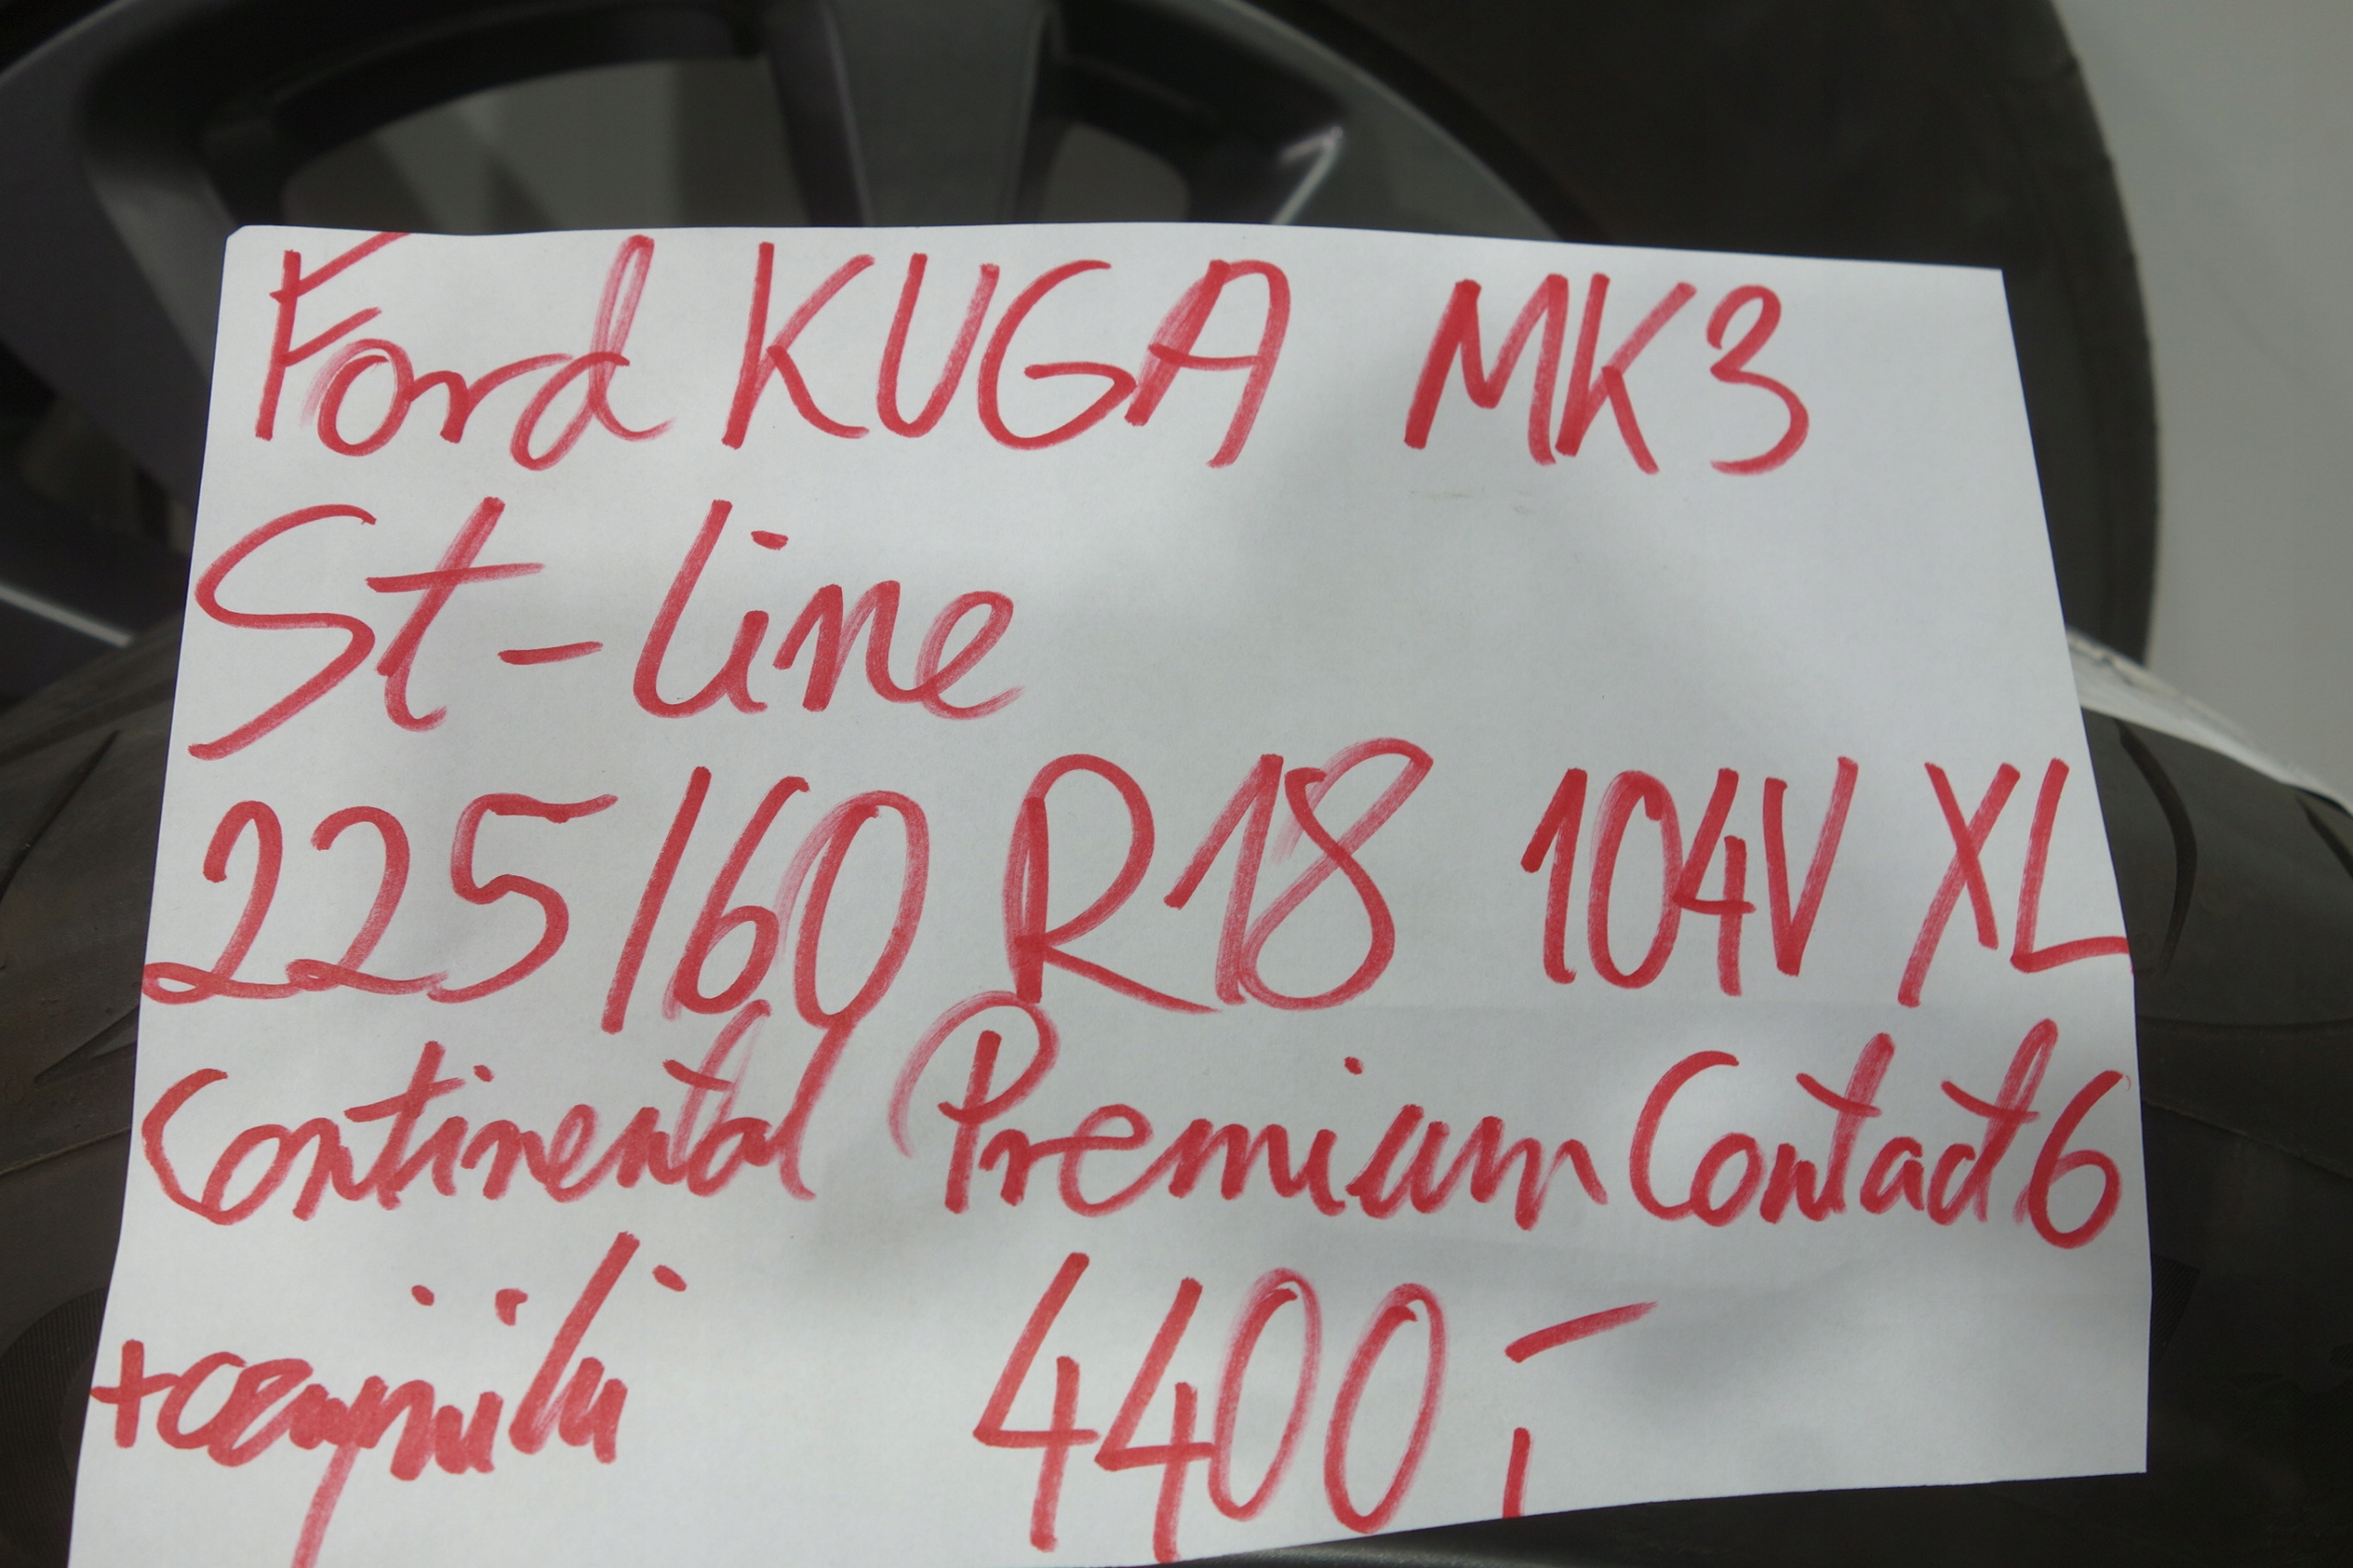 Ford KUGA MK3
St-line
225/60 R18 104V XL
Continental Premium Contact 6
+czujniki 4400,-